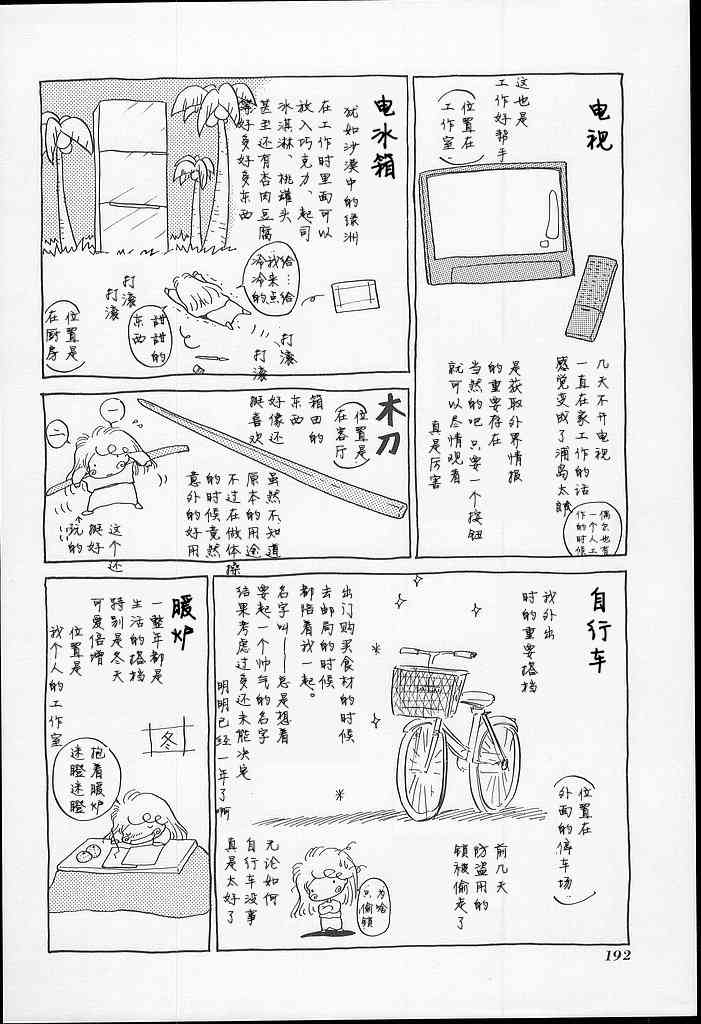 电视
这也是
工作好帮手
位置在
工作室
几天不开电视
一直在家工作的话
感觉变成了浦岛太郎
偶尔也有
一个人工
作的时候
是获取外界情报
的重要存在
当然的吧 只要一个按钮
就可以尽情观看
真是厉害
电冰箱
犹如沙漠中的绿洲
在工作时里面可以
放入巧克力、起司
冰淇淋、桃罐头
甚至还有杏肉豆腐
等好多好多东西
给…给
我来点
冷冷的
甜甜的
东西
打滚
打滚
打滚
打滚
位置是
在厨房
木刀
位置是
在客厅
箱田的
东西
好像还
挺喜欢
虽然不知道
原本的用途
不过在做体操
的时候竟然
意外的好用
一
二
这个还
挺好
玩的
自行车
我外出
时的重要搭档
位置在
外面的停车场
出订购买食材的时候
去邮局的时候
都陪着我一起。
名字叫——总是想着
要起一个帅气的名字
结果考虑过多还未能决定
明明已经一年了啊
前几天
防盗用的
锁被偷走了
为啥
只偷锁
无论如何
自行车没事
真是太好了
暖炉
一整年都是
生活的搭档
特别是冬天
可爱倍增
位置是
我个人的工作室
冬
抱着暖炉
迷瞪迷瞪
192